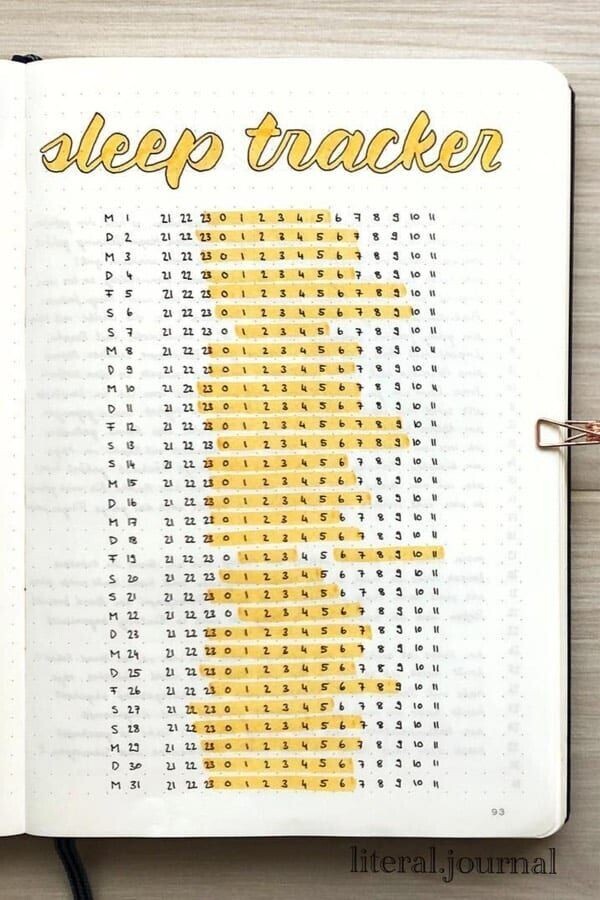 sleep tracker
M 1 21 22 23 0 1 2 3 4 5 6 7 8 9 10 11
D 2 21 22 23 0 1 2 3 4 5 6 7 8 9 10 11
M 3 21 22 23 0 1 2 3 4 5 6 7 8 9 10 11
D 4 21 22 23 0 1 2 3 4 5 6 7 8 9 10 11
F 5 21 22 23 0 1 2 3 4 5 6 7 8 9 10 11
S 6 21 22 23 0 1 2 3 4 5 6 7 8 9 10 11
S 7 21 22 23 0 1 2 3 4 5 6 7 8 9 10 11
M 8 21 22 23 0 1 2 3 4 5 6 7 8 9 10 11
D 9 21 22 23 0 1 2 3 4 5 6 7 8 9 10 11
M 10 21 22 23 0 1 2 3 4 5 6 7 8 9 10 11
D 11 21 22 23 0 1 2 3 4 5 6 7 8 9 10 11
F 12 21 22 23 0 1 2 3 4 5 6 7 8 9 10 11
S 13 21 22 23 0 1 2 3 4 5 6 7 8 9 10 11
S 14 21 22 23 0 1 2 3 4 5 6 7 8 9 10 11
M 15 21 22 23 0 1 2 3 4 5 6 7 8 9 10 11
D 16 21 22 23 0 1 2 3 4 5 6 7 8 9 10 11
M 17 21 22 23 0 1 2 3 4 5 6 7 8 9 10 11
D 18 21 22 23 0 1 2 3 4 5 6 7 8 9 10 11
F 19 21 22 23 0 1 2 3 4 5 6 7 8 9 10 11
S 20 21 22 23 0 1 2 3 4 5 6 7 8 9 10 11
S 21 21 22 23 0 1 2 3 4 5 6 7 8 9 10 11
M 22 21 22 23 0 1 2 3 4 5 6 7 8 9 10 11
D 23 21 22 23 0 1 2 3 4 5 6 7 8 9 10 11
M 24 21 22 23 0 1 2 3 4 5 6 7 8 9 10 11
D 25 21 22 23 0 1 2 3 4 5 6 7 8 9 10 11
F 26 21 22 23 0 1 2 3 4 5 6 7 8 9 10 11
S 27 21 22 23 0 1 2 3 4 5 6 7 8 9 10 11
S 28 21 22 23 0 1 2 3 4 5 6 7 8 9 10 11
M 29 21 22 23 0 1 2 3 4 5 6 7 8 9 10 11
D 30 21 22 23 0 1 2 3 4 5 6 7 8 9 10 11
M 31 21 22 23 0 1 2 3 4 5 6 7 8 9 10 11
93
literal.journal